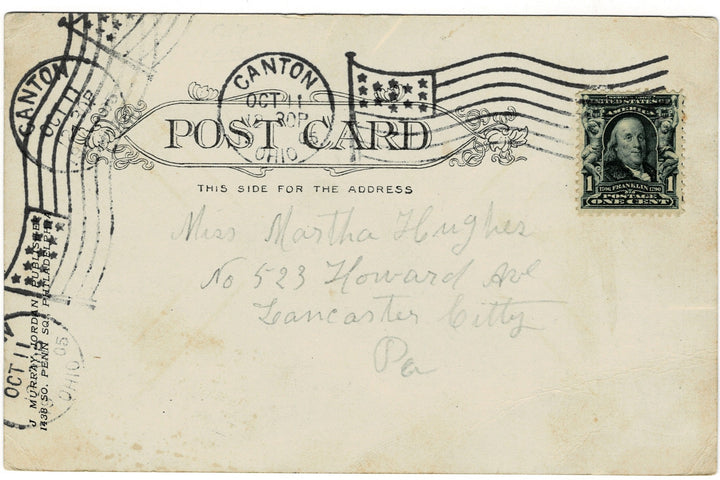 CANTON
OCT 11
30P
OHIO
POST CARD
THIS SIDE FOR THE ADDRESS
UNITED STATES OF
AMERICA
1 FRANKLIN 1
POSTAGE
ONE CENT
Miss Martha Hughes
No 523 Howard Ave
Lancaster Citty
Pa
CANTON
OCT 11
30P
OCT 11
OHIO 05
J MURRAY JORDAN PUBLISHER
1438 SO. PENN SQ. PHILADELPHI